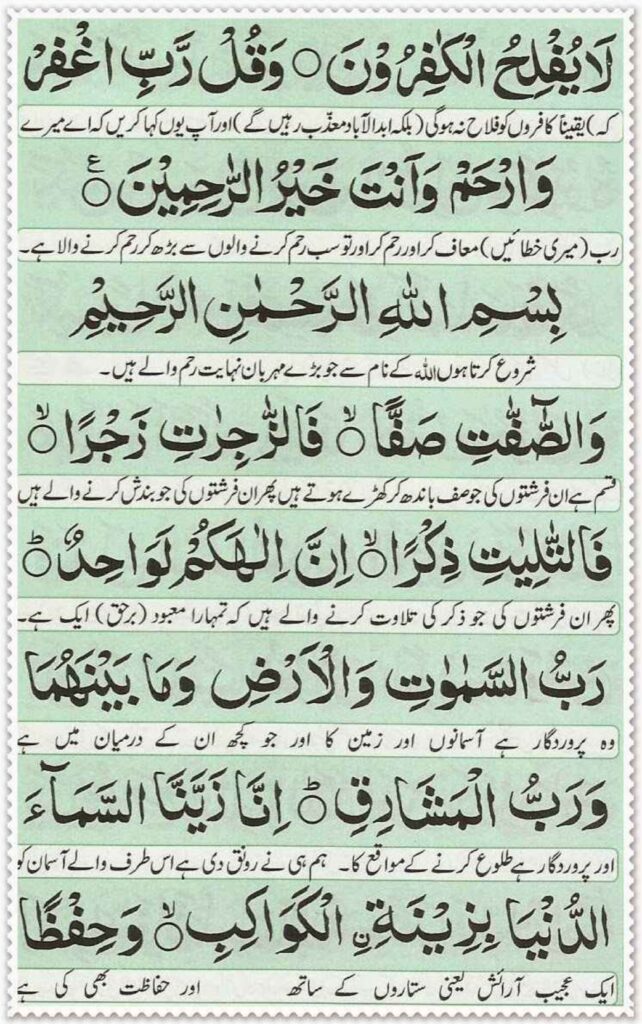 لَا يُفْلِحُ الْكٰفِرُوْنَ ○ وَقُلْ رَّبِّ اغْفِرْ
کہ) یقیناً کافروں کو فلاح نہ ہوگی (بلکہ ابدالآباد معذّب رہیں گے) اور آپ یوں کہا کریں کہ اے میرے
وَارْحَمْ وَاَنْتَ خَيْرُ الرّٰحِمِيْنَ ○ ع
رب (میری خطائیں) معاف کر اور رحم کر اور تو سب رحم کرنے والوں سے بڑھ کر رحم کرنے والا ہے۔
بِسْمِ اللهِ الرَّحْمٰنِ الرَّحِيْمِ
شروع کرتا ہوں اللہ کے نام سے جو بڑے مہربان نہایت رحم والے ہیں۔
وَالصّٰٓفّٰتِ صَفًّا ○ۙ فَالزّٰجِرٰتِ زَجْرًا ○ۙ
قسم ہے ان فرشتوں کی جو صف باندھ کر کھڑے ہوتے ہیں پھر ان فرشتوں کی جو بندش کرنے والے ہیں
فَالتّٰلِيٰتِ ذِكْرًا ○ۙ اِنَّ اِلٰهَكُمْ لَوَاحِدٌ ○ؕ
پھر ان فرشتوں کی جو ذکر کی تلاوت کرنے والے ہیں کہ تمہارا معبود (برحق) ایک ہے۔
رَبُّ السَّمٰوٰتِ وَالْاَرْضِ وَمَا بَيْنَهُمَا
وہ پروردگار ہے آسمانوں اور زمین کا اور جو کچھ ان کے درمیان میں ہے
وَرَبُّ الْمَشَارِقِ ○ؕ اِنَّا زَيَّنَّا السَّمَآءَ
اور پروردگار ہے طلوع کرنے کے مواقع کا۔ ہم ہی نے رونق دی ہے اس طرف والے آسمان کو
الدُّنْيَا بِزِيْنَةِ ِۨالْكَوَاكِبِ ○ۙ وَحِفْظًا
ایک عجیب آرائش یعنی ستاروں کے ساتھ اور حفاظت بھی کی ہے